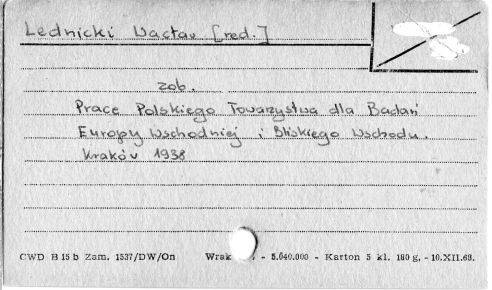 Lednicki Wacław [red.]
zob.
Prace Polskiego Towarzystwa dla Badań
Europy Wschodniej i Bliskiego Wschodu.
Kraków 1938
CWD B 15 b Zam. 1537/DW/On Wrak - 5.040.000 - Karton 5 kl. 180 g. - 10.XII.68.